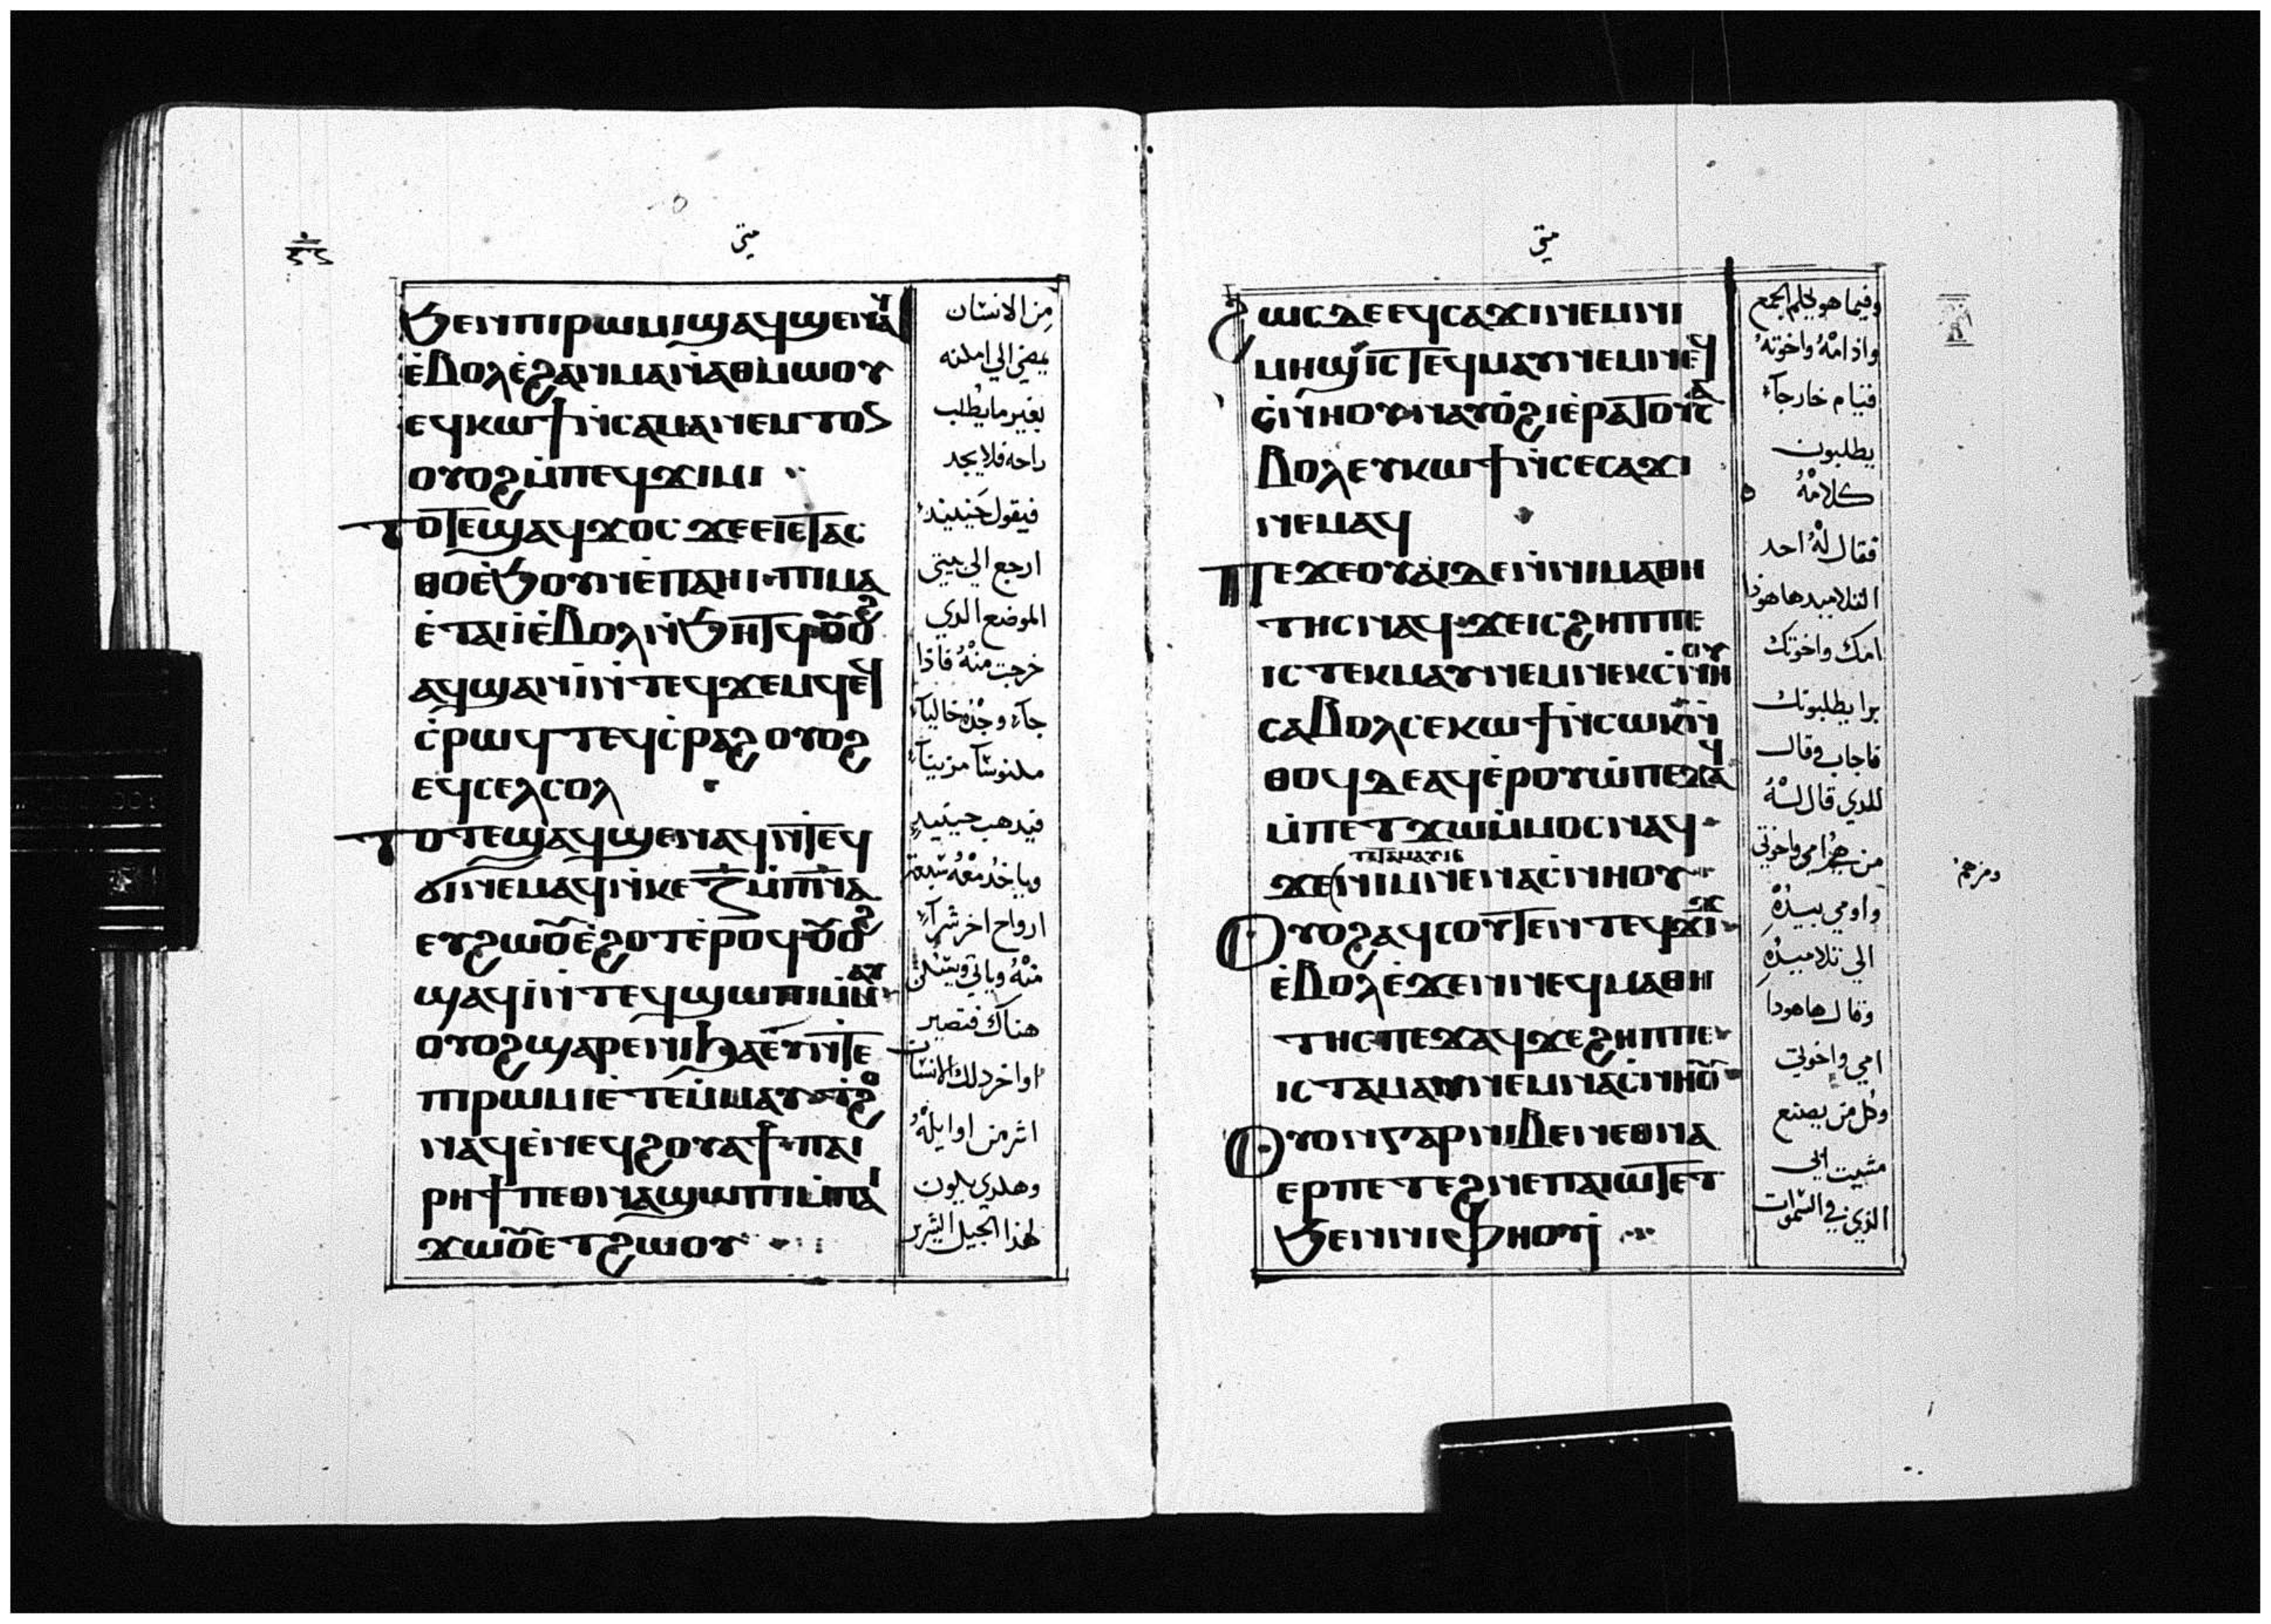 متى
ϧⲉⲛⲡⲓⲣⲱⲙⲓϣⲁϥϣⲉⲛⲁϥ
ⲉ̀ⲃⲟⲗⲉ̀ϩⲁⲛⲙⲁⲛ̀ⲁⲑⲙⲱⲟⲩ
ⲉϥⲕⲱϯⲛ̀ⲥⲁⲙⲁⲛⲉⲙⲧⲟⲛ
ⲟⲩⲟϩⲙ̀ⲡⲉϥϫⲓⲙⲓ
ⲧⲟⲧⲉϣⲁϥϫⲟⲥ ϫⲉⲉⲓⲉⲧⲁⲥ
ⲑⲟⲉ̀ϧⲟⲩⲛⲉ̀ⲡⲁⲏⲓ ⲡⲓⲙⲁ
ⲉ̀ⲧⲁⲓⲓ̀ⲉ̀ⲃⲟⲗⲛ̀ϧⲏⲧϥⲟⲩⲟϩ
ⲁϥϣⲁⲛⲓ̀ⲛ̀ⲧⲉϥϫⲉⲙϥⲉϥ
ⲥ̀ⲣⲱϥⲧ ⲉϥⲥ̀ⲣⲁϩ ⲟⲩⲟϩ
ⲉϥⲥⲉⲗⲥⲟⲗ
ⲧⲟⲧⲉϣⲁϥϣⲉⲛⲁϥⲛ̀ⲧⲉϥ
ϭⲓⲛⲉⲙⲁϥⲛ̀ⲕⲉⲍ̅ⲙ̀ⲡ̅ⲛ̅ⲁ
ⲉⲩϩⲱⲟⲩⲉ̀ϩⲟⲧⲉ̀ⲣⲟϥⲟⲩⲟϩ
ϣⲁϥⲓ̀ⲛ̀ⲧⲉϥϣⲱⲡⲓⲙ̀ⲙⲁⲩ
ⲟⲩⲟϩϣⲁⲣⲉⲛⲓϧⲁⲉⲩⲛ̀ⲧⲉ
ⲡⲓⲣⲱⲙⲓⲉ̀ⲧⲉⲙ̀ⲙⲁⲩ ϭⲓϩⲟ
ⲛⲁϥⲉ̀ⲛⲉϥϩⲟⲩⲁϯ ⲡⲁⲓ
ⲣⲏϯⲡⲉⲑⲛⲁϣⲱⲡⲓⲙ̀ⲡⲁⲓ
ϫⲱⲟⲩⲉⲧϩⲱⲟⲩ
من الانسان
يمضي الي امكنه
بغير ما يطلب
راحه فلا يجد
فيقول حينيند
ارجع الي بيتي
الموضع الدي
خرجت منه فاذا
جآء وجده خاليآء
مكنوسآ مزينآ
فيدهب حينيد
وياخد معه سبعة
ارواح اخر شرآء
منه وياتي ويسكن
هناك فتصير
اواخر دلك الانسان
اشر من اوايله
وهكدي يكون
لهذا الجيل الشرير
متى
ϩⲱⲥⲇⲉⲉϥⲥⲁϫⲓⲛⲉⲙⲛⲓ
ⲙⲏϣ ⲓⲥ ⲧⲉϥⲙⲁⲩⲛⲉⲙⲛⲉϥ
ⲥ̀ⲛⲏⲟⲩ ⲛⲁⲩⲟ̀ϩⲓⲉ̀ⲣⲁⲧⲟⲩⲥⲁ
ⲃⲟⲗⲉⲩⲕⲱϯⲛ̀ⲥⲉⲥⲁϫⲓ
ⲛⲉⲙⲁϥ
ⲡⲉϫⲉⲟⲩⲁⲓⲇⲉⲛ̀ⲛⲓⲙⲁⲑⲏ
ⲧⲏⲥⲛⲁϥ ϫⲉⲓⲥϩⲏⲡⲡⲉ
ⲓⲥ ⲧⲉⲕⲙⲁⲩⲛⲉⲙⲛⲉⲕⲥ̀ⲛⲏⲟⲩ
ⲥⲁⲃⲟⲗⲥⲉⲕⲱϯⲛ̀ⲥⲱⲕⲛ̀
ⲑⲟϥⲇⲉⲁϥⲉ̀ⲣⲟⲩⲱ̀ⲡⲉϫⲁϥ
ⲙ̀ⲡⲉⲧϫⲱⲙ̀ⲙⲟⲥⲛⲁϥ
ⲧⲉⲧⲁⲙⲁⲩⲓⲉ
ϫⲉⲛⲓⲙⲛⲉⲛⲁⲥ̀ⲛⲏⲟⲩ
ⲟⲩⲟϩⲁϥⲥⲟⲩⲧⲉⲛⲧⲉϥϫⲓϫ
ⲉ̀ⲃⲟⲗⲉ̀ϫⲉⲛⲛⲉϥⲙⲁⲑⲏ
ⲧⲏⲥⲡⲉϫⲁϥϫⲉϩⲏⲡⲡⲉ
ⲓⲥ ⲧⲁⲙⲁⲩⲛⲉⲙⲛⲁⲥ̀ⲛⲏⲟⲩ
ⲟⲩⲟⲛⲅⲁⲣⲛⲓⲃⲉⲛⲉⲑⲛⲁ
ⲉⲣⲡⲉⲧⲉϩⲛⲉⲡⲁⲓⲱⲧⲉⲧ
ϧⲉⲛⲛⲓⲫⲏⲟⲩⲓ̀
وفيما هو يكلم الجمع
واذ امه واخوته
قيام خارجآء
يطلبون
كلامه
فقال له احد
التلاميد ها هوذا
امك واخوتك
برا يطلبونك
فاجاب وقال
للدي قال له
من هي امي واخوتي
واومي بيده
الي تلاميده
وقال ها هودا
امي واخوتي
وكل من يصنع
مشيت ابي
الذي في السموات
ومن هم